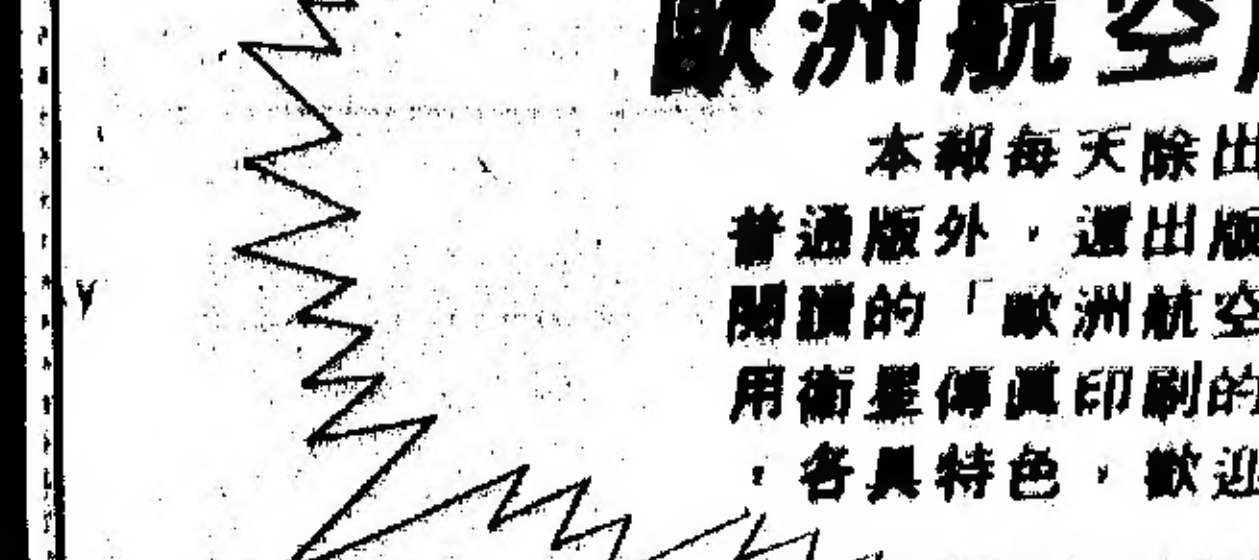 歐洲航空
本報每天除出
普通版外,還出版
閱讀的「歐洲航空
用衞星傳眞印刷的
,各具特色,歡迎